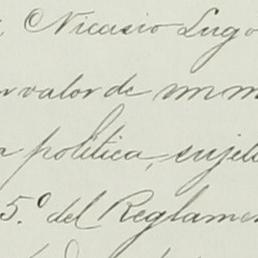 Nicasio Lugo
valor de
política, sujeta
5.º del Reglamen